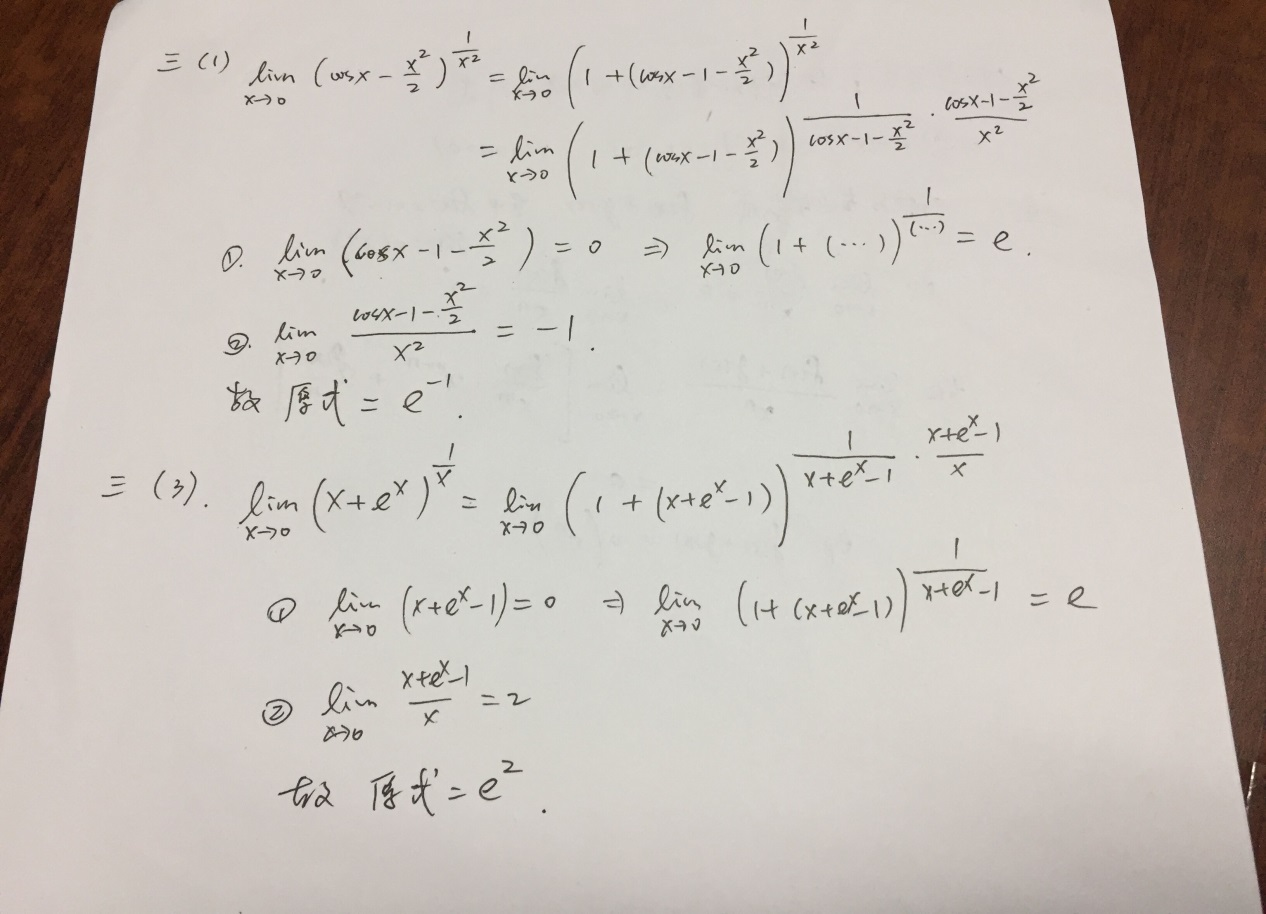 三 (1) lim_{x→0} (cosx - x²/2)^{1/x²} = lim_{x→0} (1 + (cosx - 1 - x²/2))^{1/x²}
= lim_{x→0} (1 + (cosx - 1 - x²/2))^{1/(cosx-1-x²/2) · (cosx-1-x²/2)/x²}
①. lim_{x→0} (cosx - 1 - x²/2) = 0 ⇒ lim_{x→0} (1 + (…))^{1/(…)} = e.
②. lim_{x→0} (cosx-1-x²/2)/x² = -1.
故 原式 = e^{-1}.
三 (3). lim_{x→0} (x+e^x)^{1/x} = lim_{x→0} (1 + (x+e^x-1))^{1/(x+e^x-1) · (x+e^x-1)/x}
① lim_{x→0} (x+e^x-1) = 0 ⇒ lim_{x→0} (1+(x+e^x-1))^{1/(x+e^x-1)} = e
② lim_{x→0} (x+e^x-1)/x = 2
故 原式 = e².